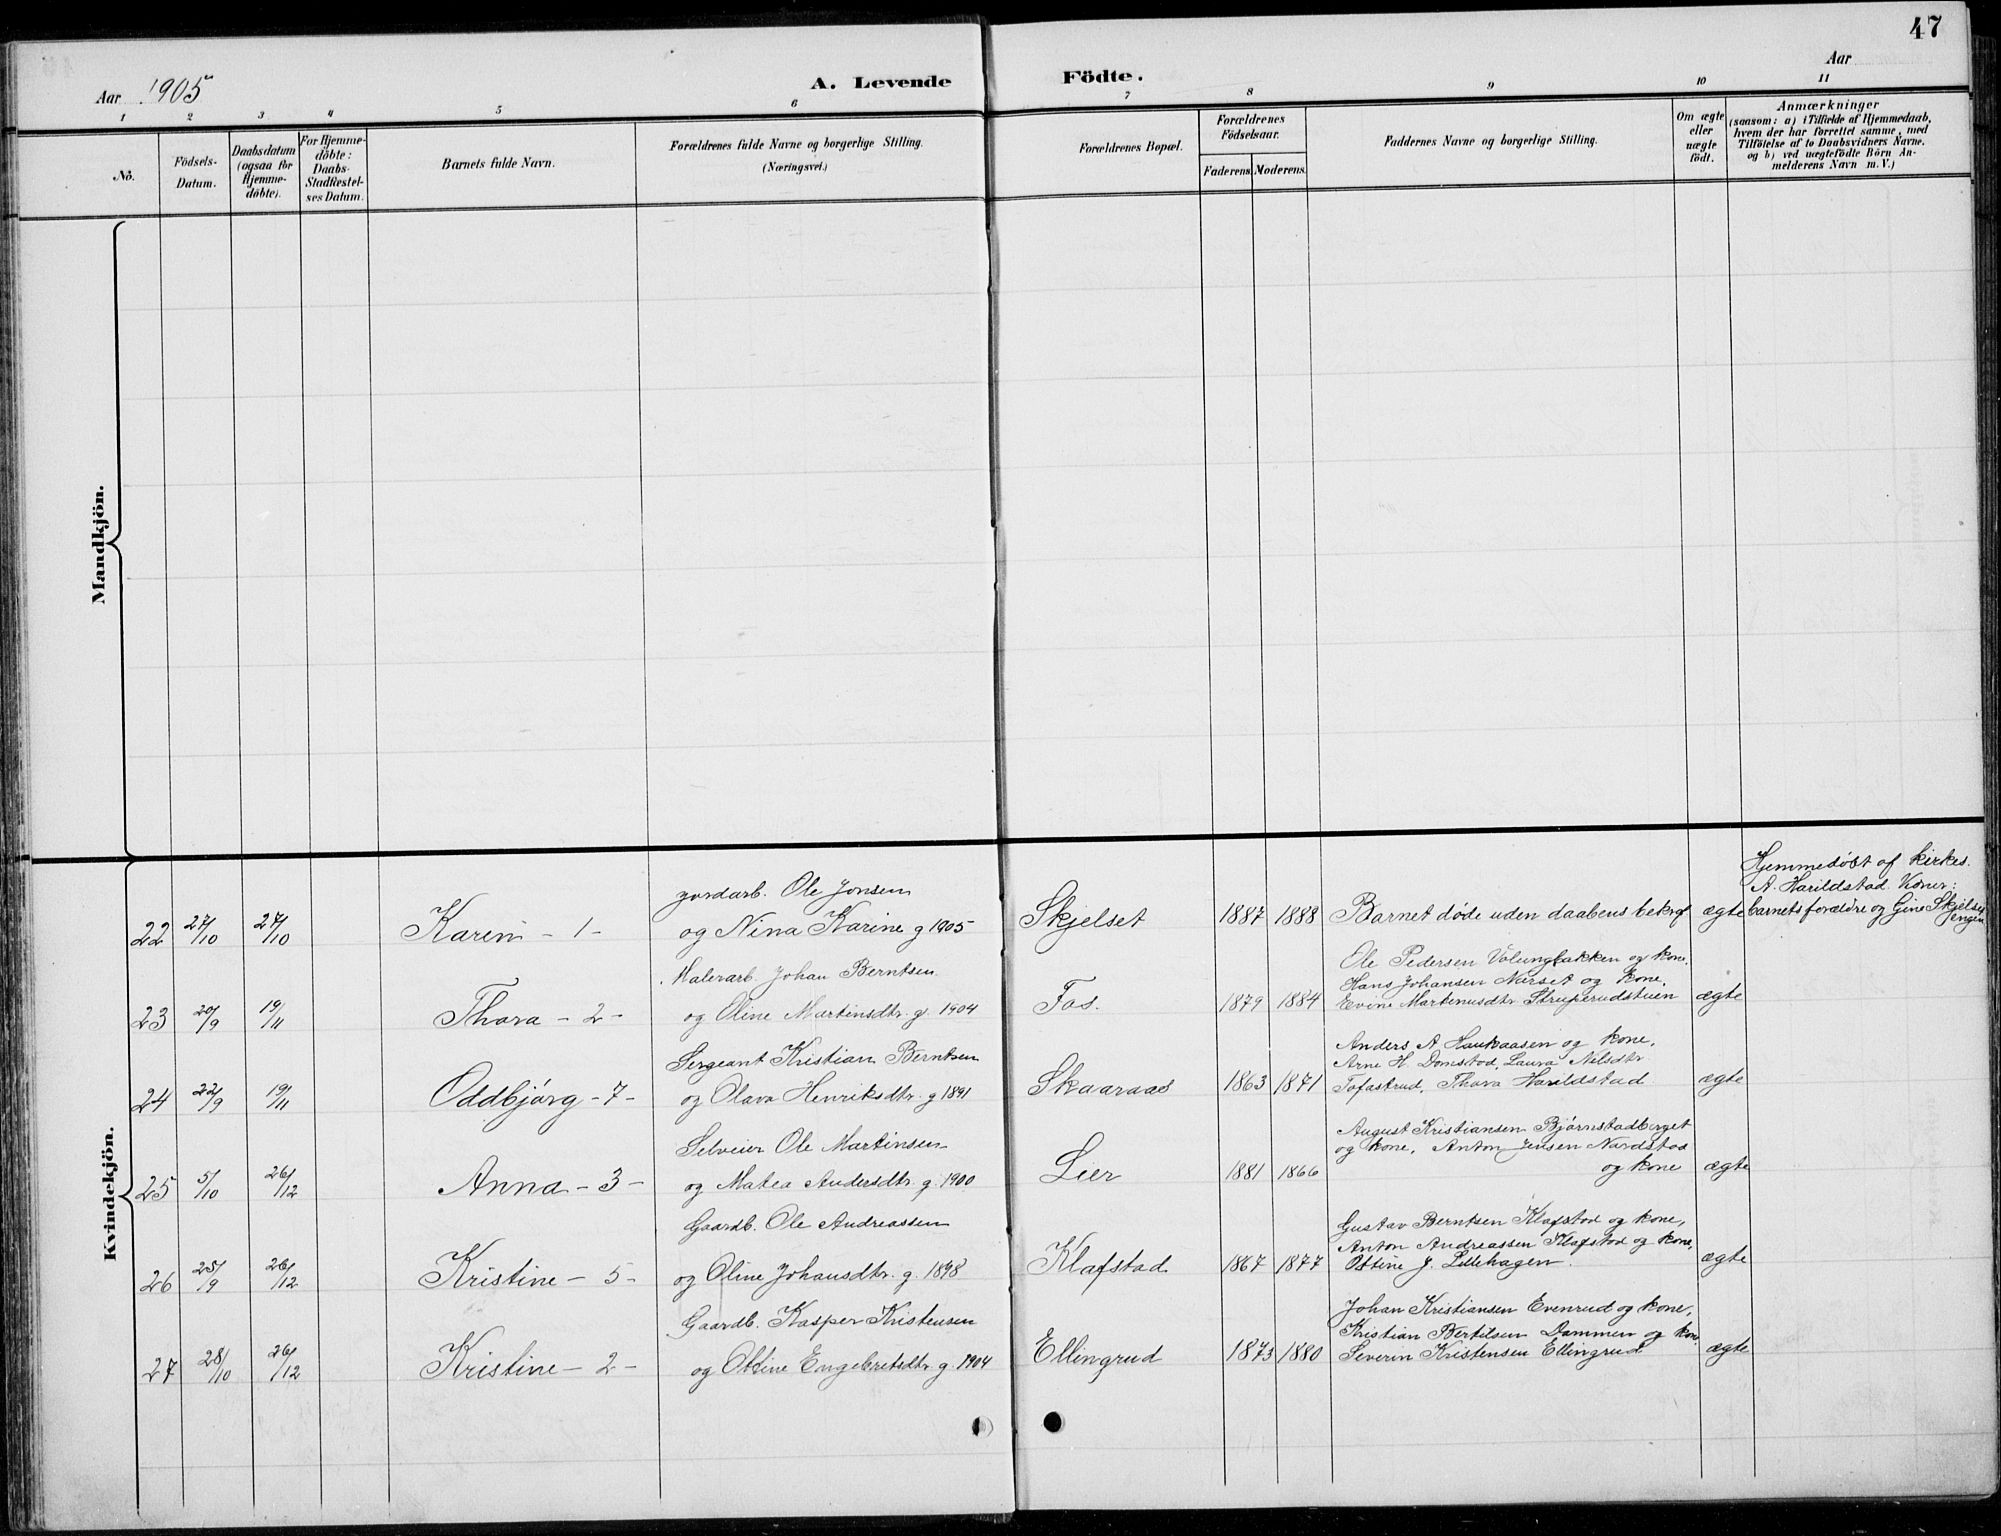 47
Aar 1905
A. Levende Födte.
Aar
1 2 3 4 5 6 7 8 9 10 11
No.
Födsels-Datum.
Daabsdatum (ogsaa for Hjemme-döbte).
For Hjemme-döbte: Daabs-Stadfæstel-ses Datum.
Barnets fulde Navn.
Forældrenes fulde Navne og borgerlige Stilling. (Næringsvei.)
Forældrenes Bopæl.
Forældrenes Födselsaar.
Faderens. Moderens.
Faddernes Navne og borgerlige Stilling.
Om ægte eller uægte födt.
Anmærkninger (saasom: a) i Tilfælde af Hjemmedaab, hvem der har forrettet samme, med Tilföielse af to Daabsvidners Navne, og b) ved uægtefödte Börn An-melderens Navn m. V.)
Mandkjön.
Kvindekjön.
gardarb. Ole Jonsen
22 27/10 27/10 Karen - 1 - og Nina Karine g 1905 Skjelset 1887 1888 Barnet døde uden daabens bekræf ægte
Hjemmedøbt af kirkes.
A. Harildstad. Vidner:
barnets forældre og Gine Skjelset
engen
Malerarb. Johan Berntsen
23 20/9 19/11 Thora - 2 - og Oline Martinsdtr. g. 1904 Fos. 1879 1884
Ole Pedersen Volungbakken og kone.
Hans Johansen Nerset og kone.
Evine Martinusdtr. Struperudstuen ægte
Sergeant Kristian Berntsen
24 22/9 19/11 Oddbjørg - 7 - og Olava Henriksdtr. g 1891 Skaaraas 1863 1871
Anders A. Haukaasen og kone.
Arne H. Domstad, Laura Nilsdtr
Tofastrud, Thora Harildstad ægte
Selveier Ole Martinsen
25 5/10 26/12 Anna - 3 - og Matea Andersdtr. g. 1900 Lier 1881 1866
August Kristiansen Bjørnstadberget
og kone, Anton Jensen Nordstos
og kone ægte
Gaardb. Ole Andreassen
26 25/9 26/12 Kristine - 5 - og Oline Johansdtr. g. 1898 Klafstad 1867 1877
Gustav Berntsen Klafstad og kone,
Anton Andreassen Klafstad og kone,
Ottine J. Lillehagen. ægte
Gaardb. Kasper Kristensen
27 28/10 26/12 Kristine - 2 - og Ottine Engebretsdtr. g. 1904 Ellingrud 1873 1880
Johan Kristiansen Evenrud og kone,
Kristian Bertilsen Dammen og kone
Severin Kristensen Ellingrud ægte